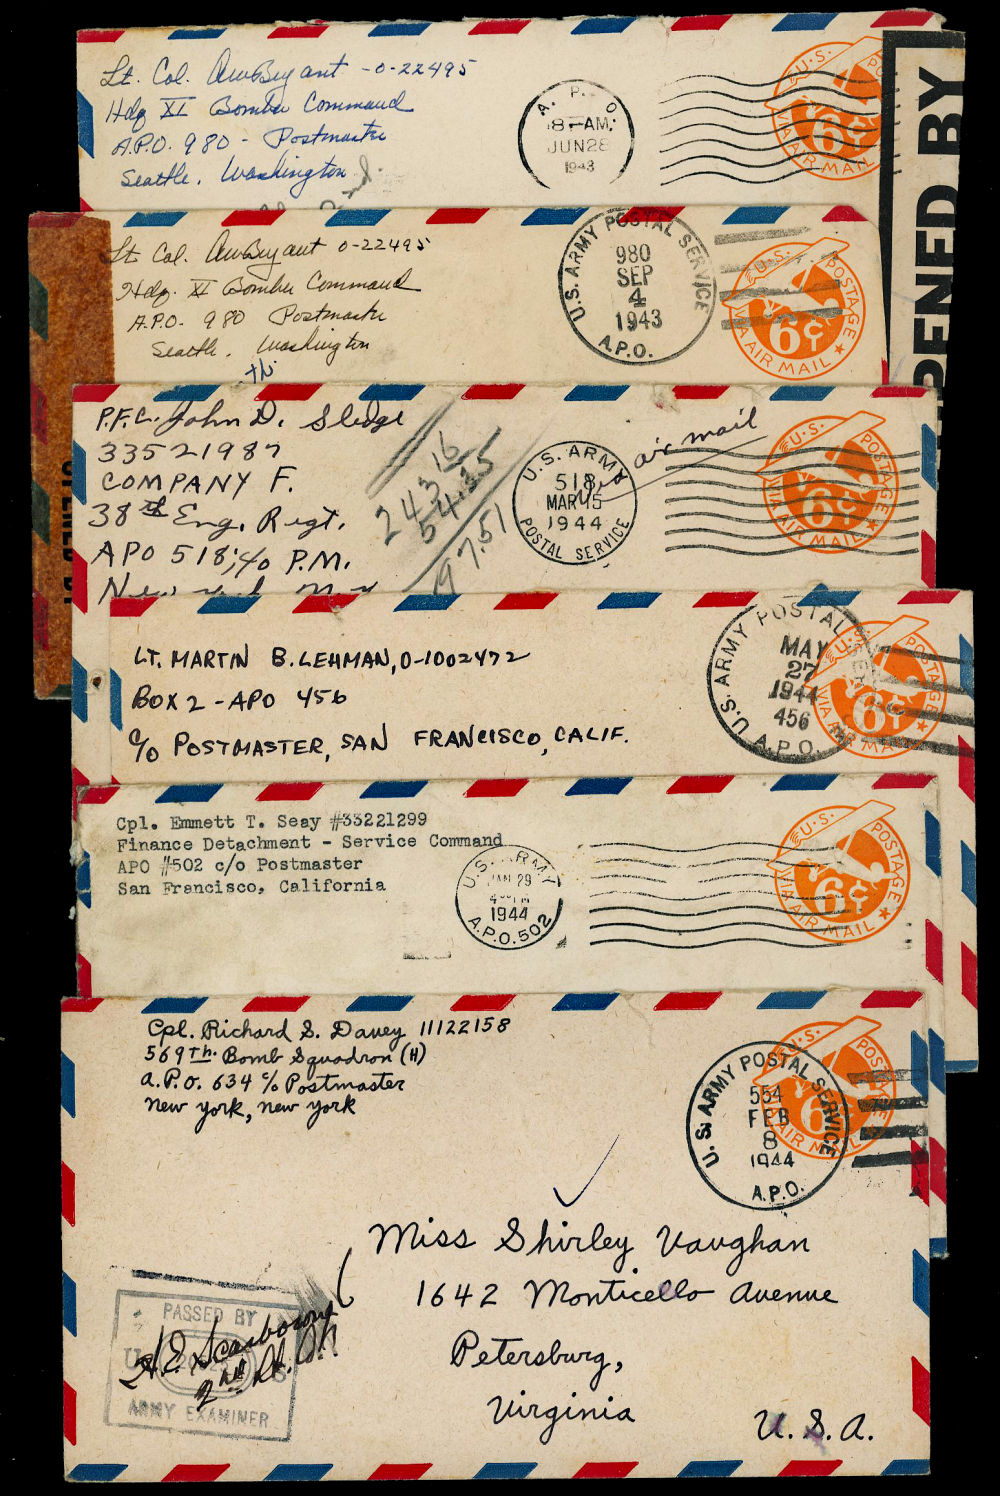 Lt. Col. AWBryant -O-22495
Hdq XI Bomber Command
A.P.O. 980 - Postmaster
Seattle, Washington
A. P. O.
8 - AM.
JUN 28
1943
U.S. PO
6¢
VIA AIR MAIL
OPENED BY
Lt Col. AWBryant O-22495
Hdq. XI Bomber Command
A.P.O. 980 Postmaster
Seattle, Washington
U.S. ARMY POSTAL SERVICE
980
SEP
4
1943
A.P.O.
U.S. POSTAGE
6¢
VIA AIR MAIL
P.F.C. John D. Sledge
33521987
COMPANY F.
38th Eng. Regt.
APO 518; c/o P.M.
243 16
54.35
197.51
air mail
U.S. ARMY
518
MAR 15
1944
POSTAL SERVICE
U.S. POSTAGE
6¢
VIA AIR MAIL
LT. MARTIN B. LEHMAN, O-1002472
BOX 2 - APO 456
c/o POSTMASTER, SAN FRANCISCO, CALIF.
U.S. ARMY POSTAL
MAY
27
1944
456
A.P.O.
U.S. POSTAGE
6¢
VIA AIR MAIL
Cpl. Emmett T. Seay #33221299
Finance Detachment - Service Command
APO #502 c/o Postmaster
San Francisco, California
U.S. ARMY
JAN 29
1944
A.P.O. 502
U.S. POSTAGE
6¢
VIA AIR MAIL
Cpl. Richard S. Davey 11122158
569th. Bomb Squadron (H)
A.P.O. 634 c/o Postmaster
New York, New York
U.S. ARMY POSTAL SERVICE
554
FEB
8
1944
A.P.O.
U.S. POS
6
VIA AIR M
Miss Shirley Vaughan
1642 Monticello Avenue
Petersburg,
Virginia
U. S. A.
PASSED BY
U S
ARMY EXAMINER
H.E. Scarborough
2nd Lt.